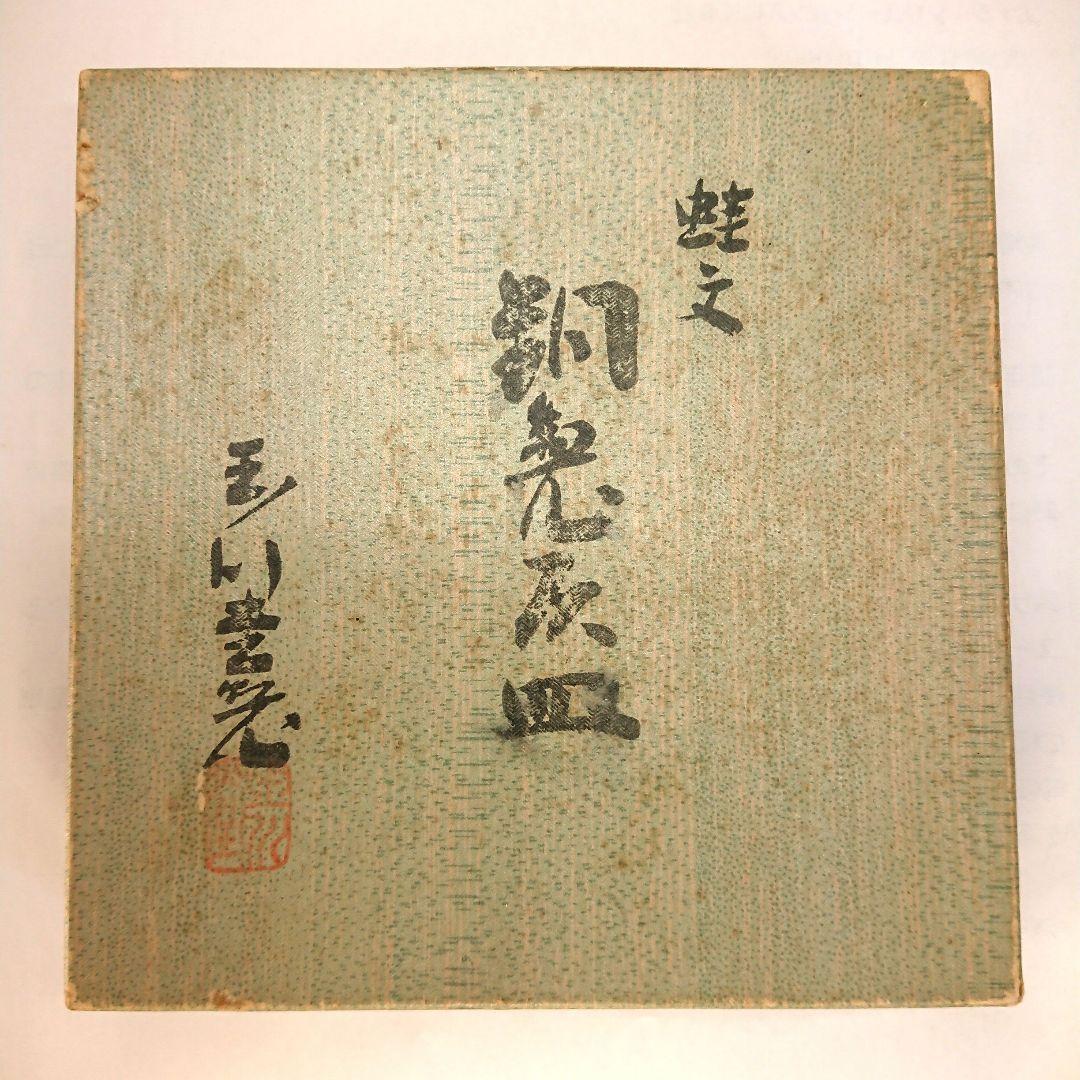 蛙文
銅製灰皿
玉川堂製